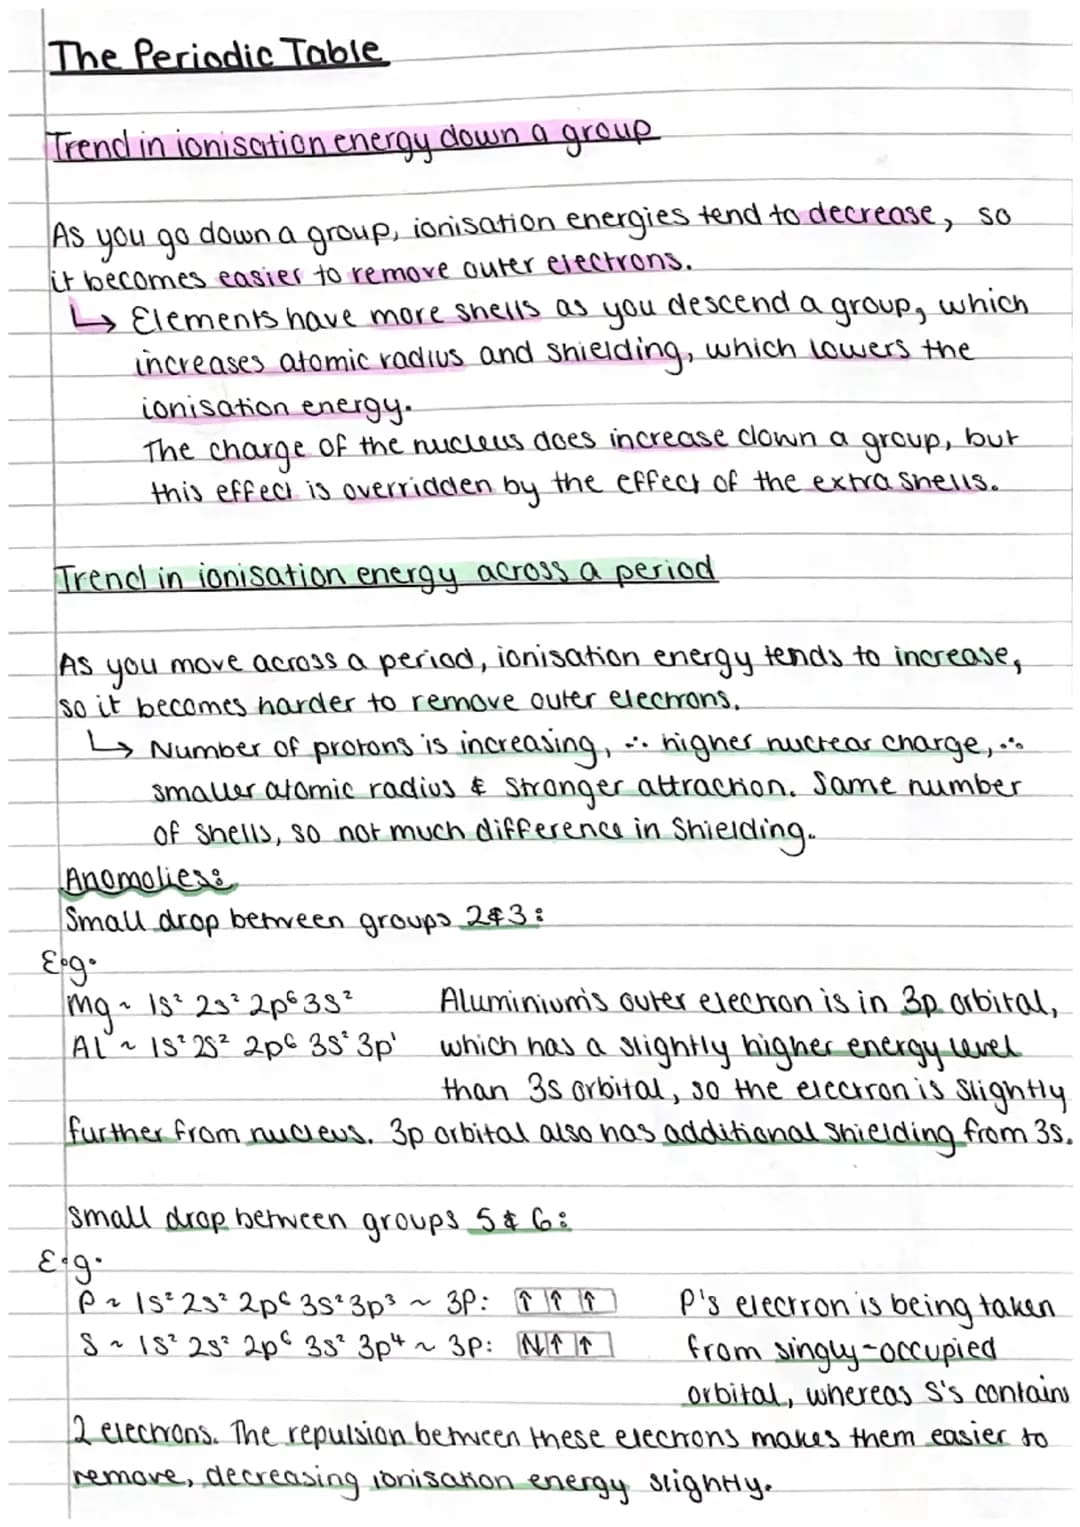 The Periodic Table
Trend in ionisation energy down a group
As you go down a group, ionisation energies tend to decrease, so
it becomes easier to remove outer electrons.
↳ Elements have more shells as you descend a group, which
increases atomic radius and shielding, which lowers the
ionisation energy.
The charge of the nucleus does increase down a group, but
this effect is overridden by the effect of the extra shells.
Trend in ionisation energy across a period
As you move across a period, ionisation energy tends to increase,
so it becomes harder to remove outer electrons.
↳ Number of protons is increasing, ∴ higher nuclear charge, ∴
smaller atomic radius & stronger attraction. Same number
of shells, so not much difference in shielding.
Anomolies:
Small drop between groups 2&3:
E.g.
Mg ~ 1s² 2s² 2p⁶ 3s² Aluminium's outer electron is in 3p orbital,
Al ~ 1s² 2s² 2p⁶ 3s² 3p¹ which has a slightly higher energy level
than 3s orbital, so the electron is slightly
further from nucleus. 3p orbital also has additional shielding from 3s.
Small drop between groups 5 & 6:
E.g.
P ~ 1s² 2s² 2p⁶ 3s² 3p³ ~ 3P: ↑ ↑ ↑ P's electron is being taken
S ~ 1s² 2s² 2p⁶ 3s² 3p⁴ ~ 3P: ↑↓ ↑ ↑ from singly-occupied
orbital, whereas S's contains
2 electrons. The repulsion between these electrons makes them easier to
remove, decreasing ionisation energy slightly.